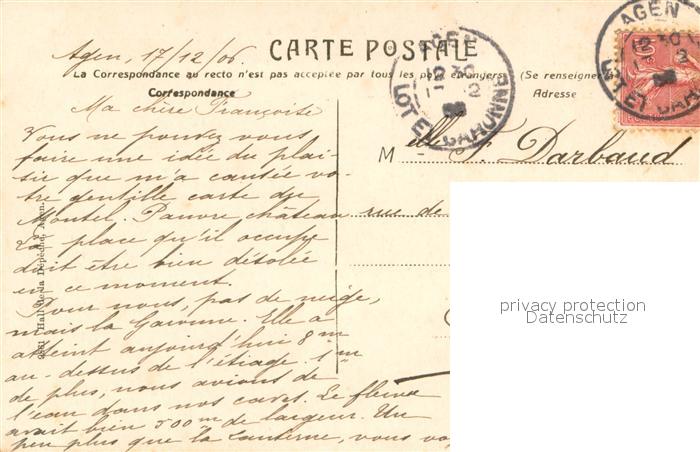 Agen, 17/12/06.
CARTE POSTALE
La Correspondance au recto n'est pas acceptée par tous les pays étrangers (Se renseigner
Correspondance
Adresse
Ma chère Françoise
Vous ne pouvez vous
faire une idée du plai-
sir que m'a causée vo-
tre gentille carte du
Montel. Pauvre château
La place qu'il occupe
doit être bien désolée
en ce moment.
Pour nous, pas de neige,
mais la Garonne. Elle a
atteint aujourd'hui 8m
au-dessus de l'étiage. 1m
de plus, nous avions de
l'eau dans nos caves. Le fleuve
avait bien 500m de largeur. Un
peu plus que la Lanterne, vous vo
Melle F. Darbaud
rue de
AGEN
12 30
LOT ET GARONNE
AGEN
12 30
LOT ET GAR
10
2361 Hall de la Dépêche, Agen.
privacy protection
Datenschutz